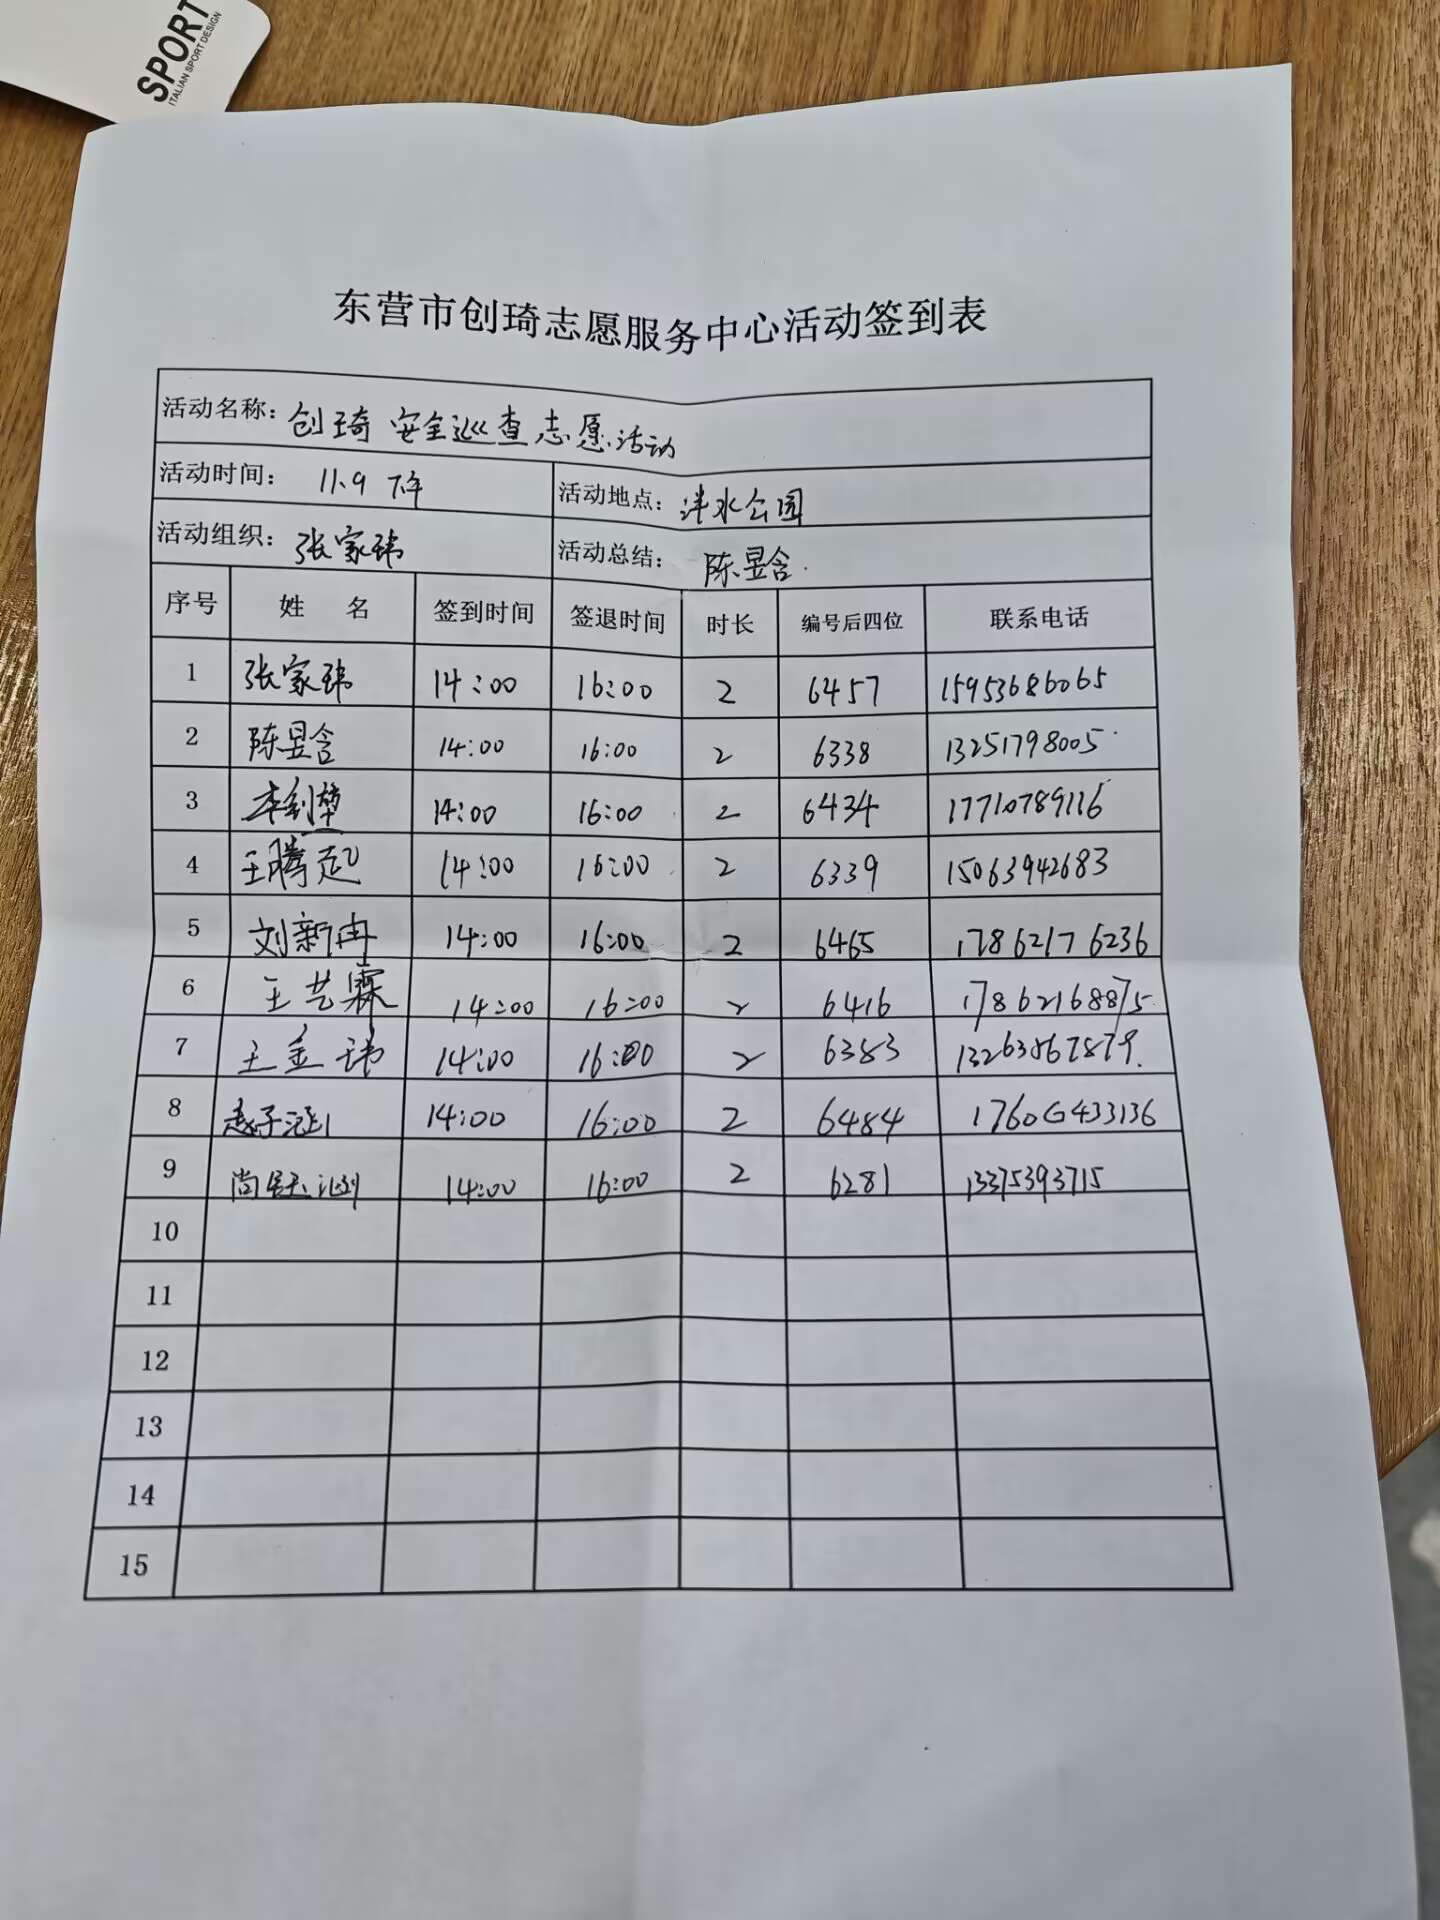 SPORT
ITALIAN SPORT DESIGN
东营市创琦志愿服务中心活动签到表
活动名称: 创琦安全巡查志愿活动
活动时间: 11.9 下午 活动地点: 泮水公园
活动组织: 张家玮 活动总结: 陈昱含
序号 姓 名 签到时间 签退时间 时长 编号后四位 联系电话
1 张家玮 14:00 16:00 2 6457 15953686065
2 陈昱含 14:00 16:00 2 6338 13251798005
3 李 14:00 16:00 2 6434 17710789116
4 王腾起 14:00 16:00 2 6339 15063942683
5 刘新冉 14:00 16:00 2 6465 17862176236
6 王艺霖 14:00 16:00 2 6416 17862168875
7 王金玮 14:00 16:00 2 6383 13263567879
8 赵子涵 14:00 16:00 2 6484 17606433136
9 尚 14:00 16:00 2 6281 13375393715
10
11
12
13
14
15